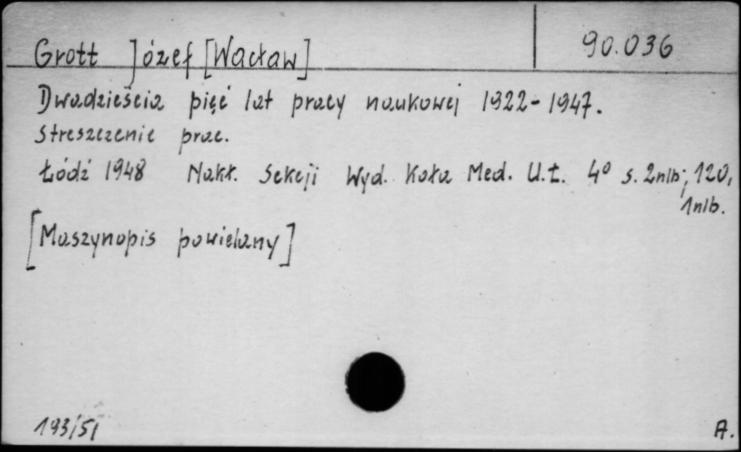 Grott Józef [Wacław] 90.036
Dwadzieścia pięć lat pracy naukowej 1922-1947.
Streszczenie prac.
Łódź 1948 Nakł. Sekcji Wyd. Koła Med. U.Ł. 4° s. 2nlb; 120,
1nlb.
[Maszynopis powielany]
193/51 A.